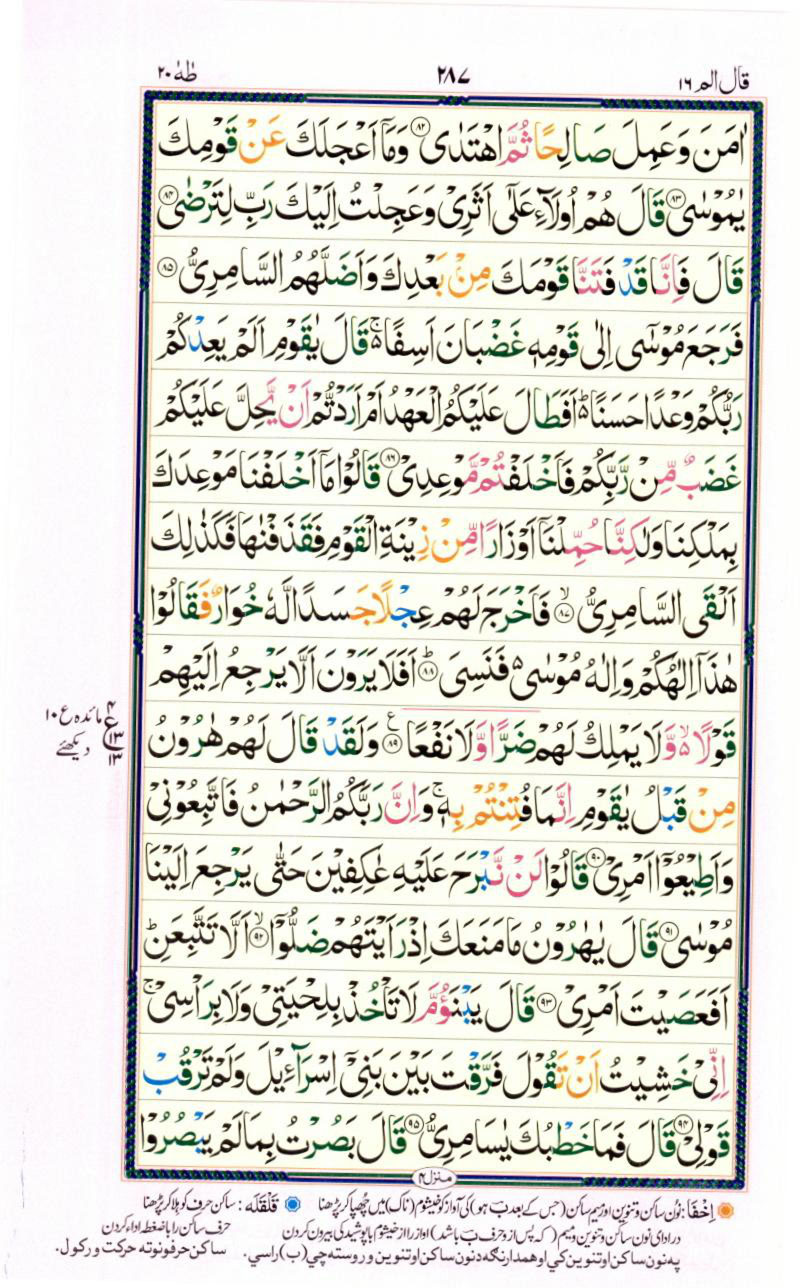 قال الم ١٦
٢٨٧
طٰهٰ ٢٠
اٰمَنَ وَعَمِلَ صَالِحًا ثُمَّ اهْتَدٰى ۸۲ وَمَاۤ اَعْجَلَكَ عَنْ قَوْمِكَ
يٰمُوْسٰى ۸۳ قَالَ هُمْ اُولَآءِ عَلٰۤى اَثَرِىْ وَعَجِلْتُ اِلَيْكَ رَبِّ لِتَرْضٰى ۸۴
قَالَ فَاِنَّا قَدْ فَتَنَّا قَوْمَكَ مِنْۢ بَعْدِكَ وَاَضَلَّهُمُ السَّامِرِىُّ ۸۵
فَرَجَعَ مُوْسٰۤى اِلٰى قَوْمِهٖ غَضْبَانَ اَسِفًا ۵ ۚ قَالَ يٰقَوْمِ اَلَمْ يَعِدْكُمْ
رَبُّكُمْ وَعْدًا حَسَنًا ۵ ؕ اَفَطَالَ عَلَيْكُمُ الْعَهْدُ اَمْ اَرَدْتُّمْ اَنْ يَّحِلَّ عَلَيْكُمْ
غَضَبٌ مِّنْ رَّبِّكُمْ فَاَخْلَفْتُمْ مَّوْعِدِىْ ۸۶ قَالُوْا مَاۤ اَخْلَفْنَا مَوْعِدَكَ
بِمَلْكِنَا وَلٰكِنَّا حُمِّلْنَاۤ اَوْزَارًا مِّنْ زِيْنَةِ الْقَوْمِ فَقَذَفْنٰهَا فَكَذٰلِكَ
اَلْقَى السَّامِرِىُّ ۙ ۸۷ فَاَخْرَجَ لَهُمْ عِجْلًا جَسَدًا لَّهٗ خُوَارٌ فَقَالُوْا
هٰذَاۤ اِلٰهُكُمْ وَاِلٰهُ مُوْسٰى ۵ فَنَسِىَ ؕ ۸۸ اَفَلَا يَرَوْنَ اَلَّا يَرْجِعُ اِلَيْهِمْ
قَوْلًا ۵ ۙ وَّلَا يَمْلِكُ لَهُمْ ضَرًّا وَّلَا نَفْعًا ۸۹ ع وَلَقَدْ قَالَ لَهُمْ هٰرُوْنُ
مِنْ قَبْلُ يٰقَوْمِ اِنَّمَا فُتِنْتُمْ بِهٖ ۚ وَاِنَّ رَبَّكُمُ الرَّحْمٰنُ فَاتَّبِعُوْنِىْ
وَاَطِيْعُوْۤا اَمْرِىْ ۹۰ قَالُوْا لَنْ نَّبْرَحَ عَلَيْهِ عٰكِفِيْنَ حَتّٰى يَرْجِعَ اِلَيْنَا
مُوْسٰى ۹۱ قَالَ يٰهٰرُوْنُ مَا مَنَعَكَ اِذْ رَاَيْتَهُمْ ضَلُّوْۤا ۙ ۹۲ اَلَّا تَتَّبِعَنِ ؕ
اَفَعَصَيْتَ اَمْرِىْ ۹۳ قَالَ يَبْنَؤُمَّ لَا تَاْخُذْ بِلِحْيَتِىْ وَلَا بِرَاْسِىْ ۚ
اِنِّىْ خَشِيْتُ اَنْ تَقُوْلَ فَرَّقْتَ بَيْنَ بَنِىْۤ اِسْرَآءِيْلَ وَلَمْ تَرْقُبْ
قَوْلِىْ ۹۴ قَالَ فَمَا خَطْبُكَ يٰسَامِرِىُّ ۹۵ قَالَ بَصُرْتُ بِمَا لَمْ يَبْصُرُوْا
۴ ع ۱۳ ۱۳
مائدہ ع ۱۰
دیکھئے
منزل ۴
اِخْفَا: نون ساکن و تنوین اور میم ساکن (جس کے بعد ب ہو) کی آواز کو خیشوم (ناک) میں چھپا کر پڑھنا
قَلقَلَه: ساکن حرف کو ہلا کر پڑھنا
در ادای نون ساکن و تنوین و میم (که پس از و حرف ب باشد) اواز را از خیشوم با پوشیدگی بیرون کردن
حرف ساکن را با ضغطه اداء کردن
په نون ساکن او تنوین کي او همدا رنګه د نون ساکن او تنوین وروسته چي (ب) راسي.
ساکن حرفونو ته حرکت ورکول.